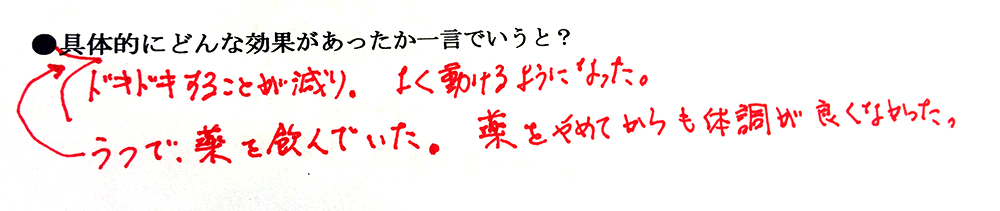 ●具体的にどんな効果があったか一言でいうと？
ドキドキすることが減り。よく動けるようになった。
うつで、薬を飲んでいた。薬をやめてからも体調が良くなかった。